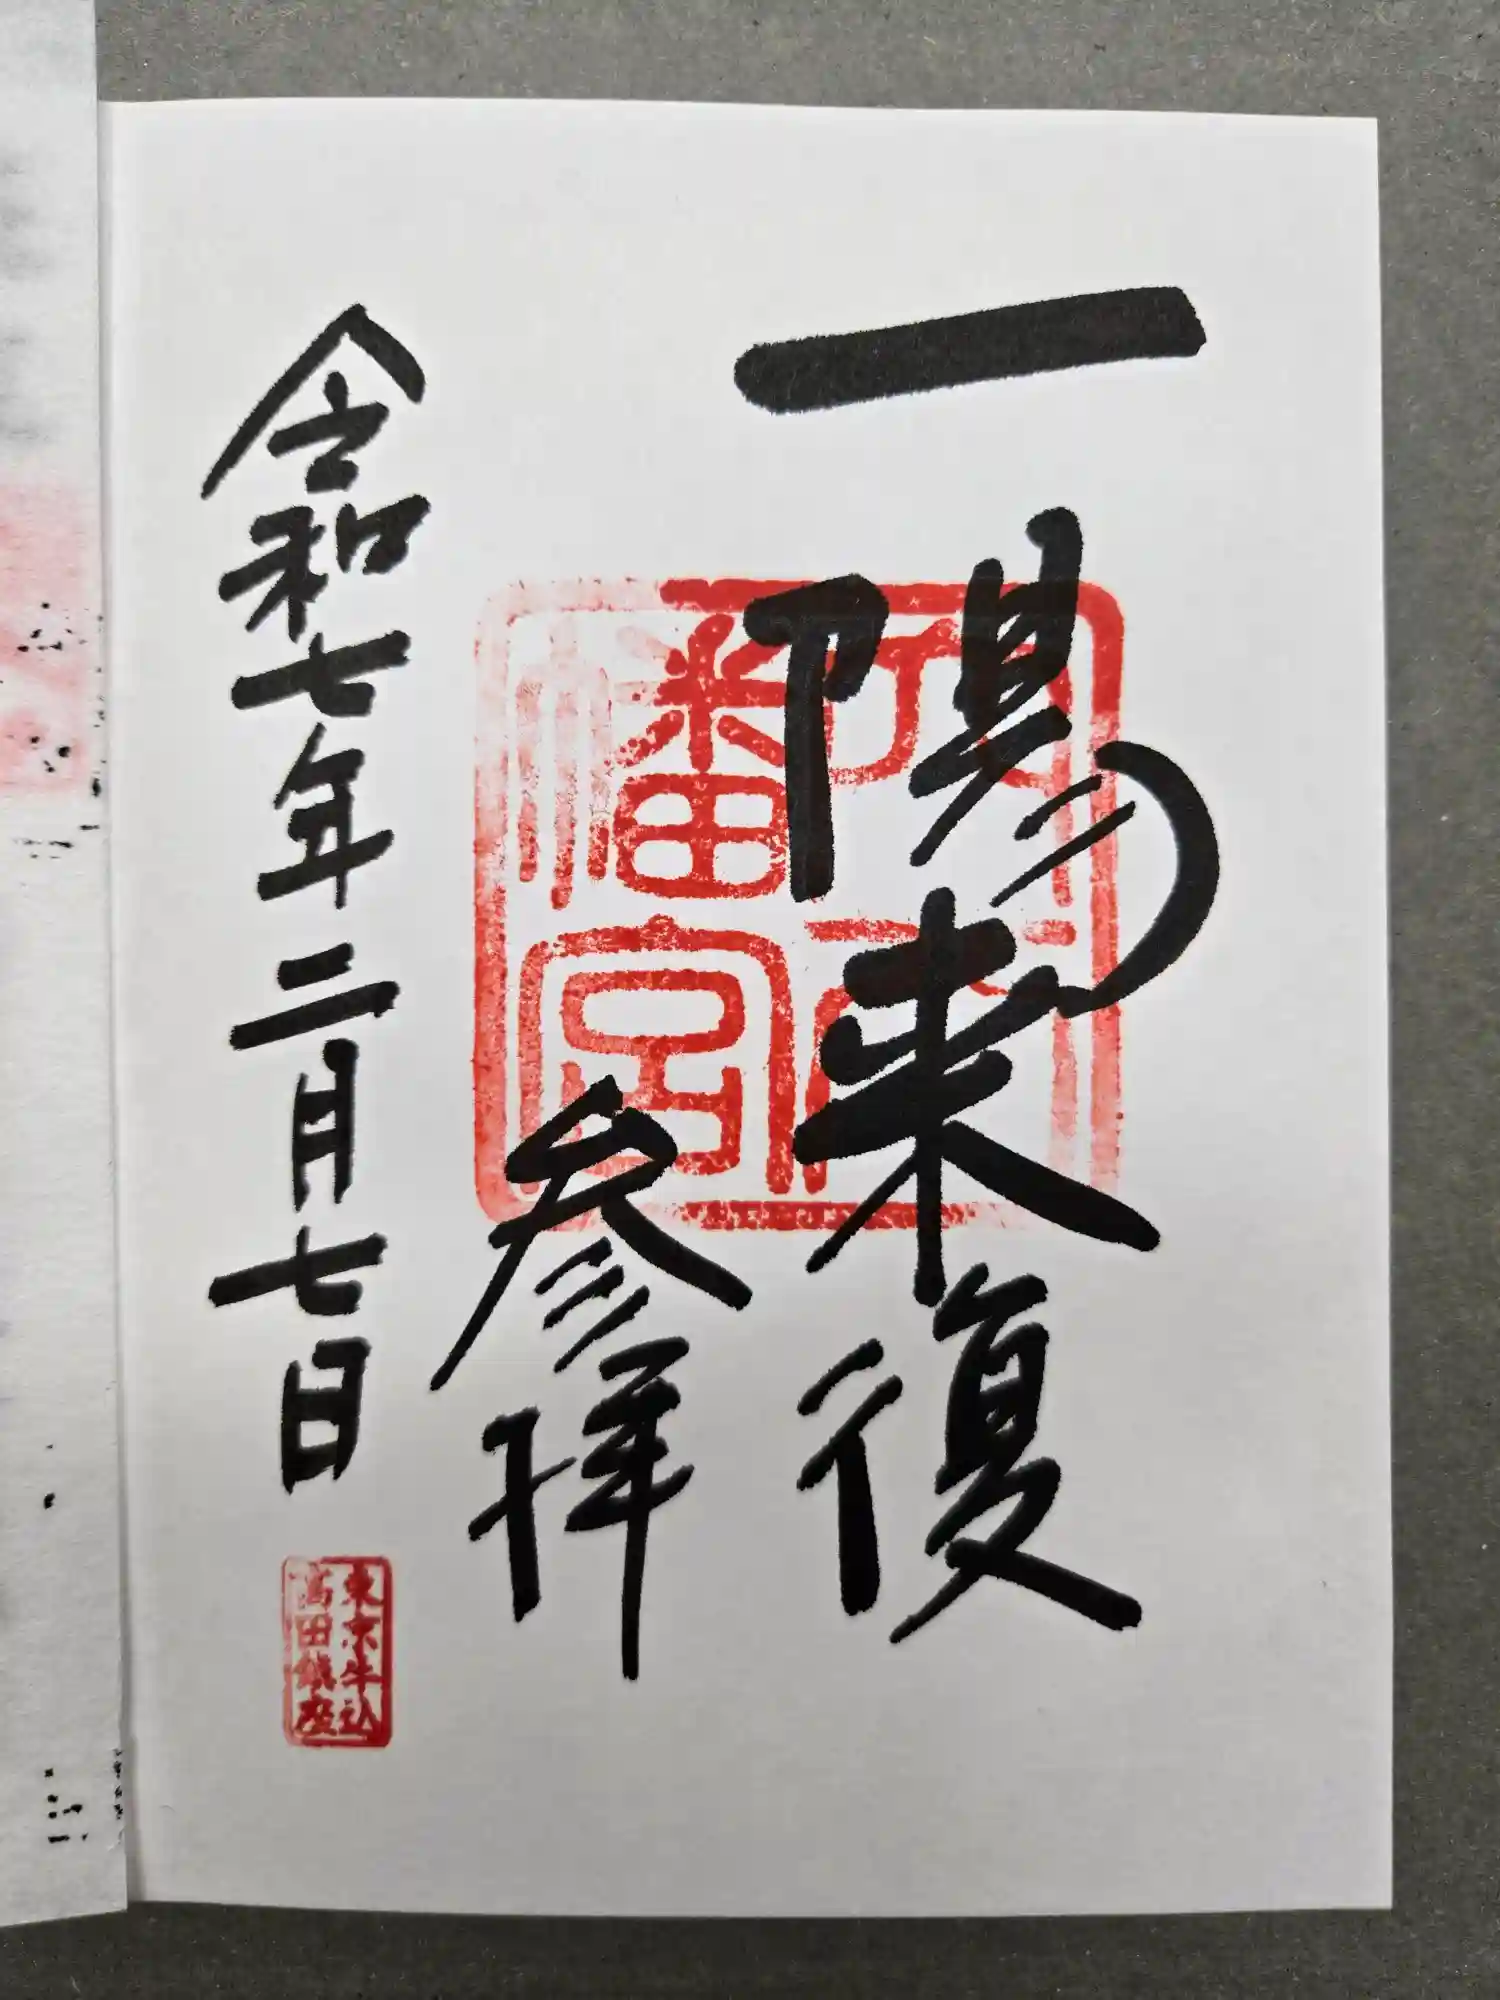 一陽来復
参拝
令和七年二月七日
八幡宮
東京牛込
高田鎮座